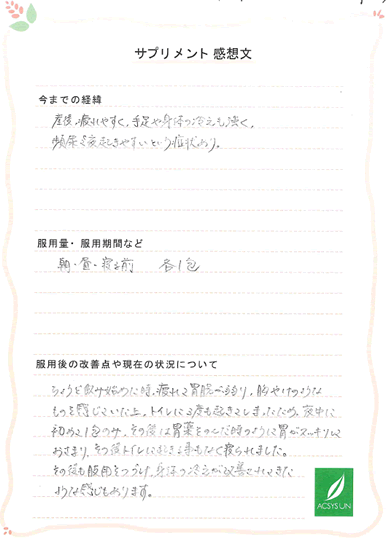 サプリメント 感想文
今までの経緯
産後、疲れやすく、手足や身体の冷えも強く、
頻尿で夜起きやすいという症状あり。
服用量・服用期間など
朝・昼・寝る前 各1包
服用後の改善点や現在の状況について
ちょうど飲み始めた時、疲れて胃腸が弱り、胸やけのような
ものを感じていた上、トイレに2度も起きてしまったため、夜中に
初めて1包のみ、その後は胃薬をのんだ時のように胃がスッキリして
おさまり、その後トイレに起きる事もなく寝られました。
その後も服用をつづけ、身体の冷えが改善されてきた
ような感じもあります。
ACSYSUN